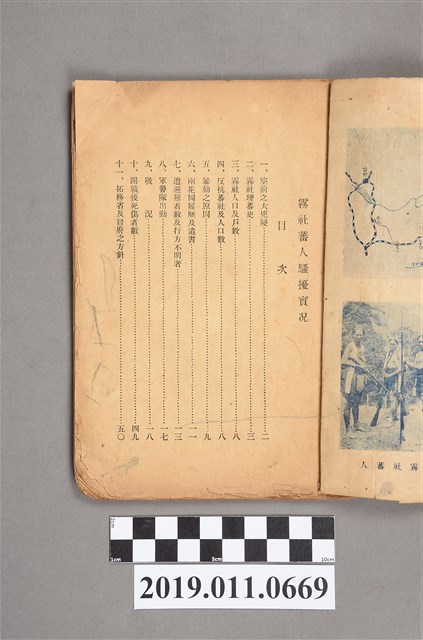 霧社蕃人騷擾實况
目次
一、空前之大兇變……二
二、霧社理蕃史……三
三、霧社人口及戶數……八
四、反抗蕃社及人口數……八
五、暴動之原因……九
六、兩花岡履歷及遺書……一一
七、遭難者數及行方不明者……一三
八、軍警隊出動……一七
九、戰況……一八
十、開戰後死傷者數……四九
十一、拓務省及督府之方針……五〇
霧社蕃人
2cm
1cm
5cm
10cm
2019.011.0669